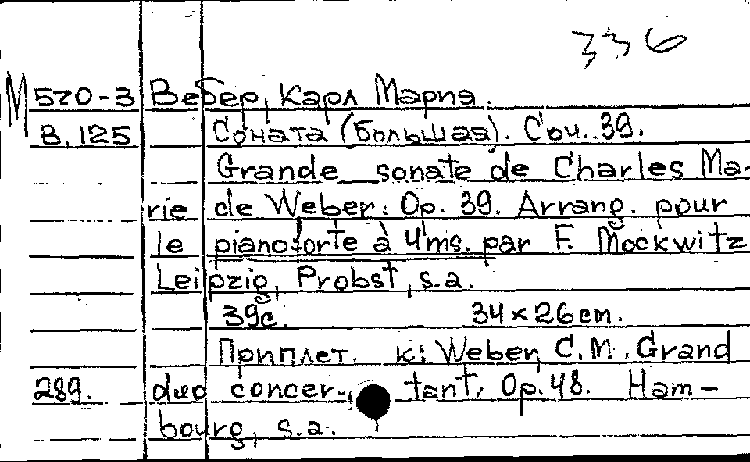 336
М 570-3 Вебер, Карл Мария.
В.125 Соната (большая). Соч. 39.
Grande sonate de Charles Ma-
rie de Weber. Op. 39. Arrang. pour
le pianoforte à 4 ms. par F. Mockwitz
Leipzig, Probst, s.a.
39c. 34×26 cm.
Приплет. к: Weber, C.M. Grand
289. duo concer- tant. Op. 48. Ham-
bourg, s.a.